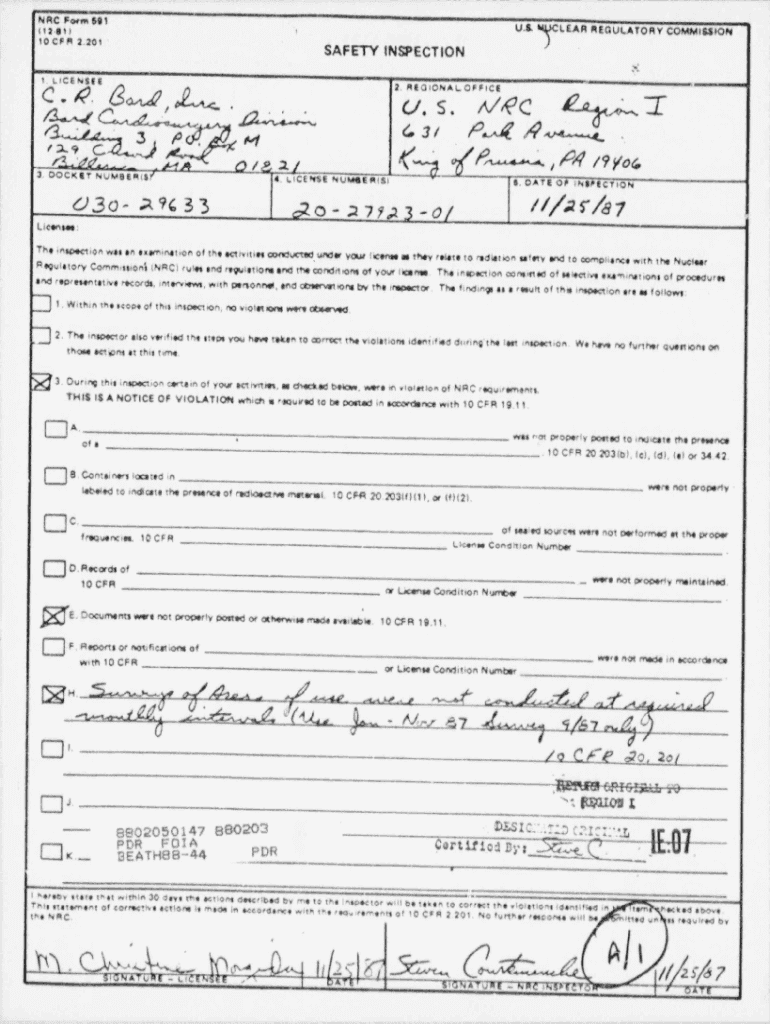 NRC Form 591
(12-81)
10 CFR 2.201
U.S. NUCLEAR REGULATORY COMMISSION
SAFETY INSPECTION
1. LICENSEE
C. R. Bard, Inc.
Bard Cardiosurgery Division
Building 3, P.O. Box M
129 Concord Road
Billerica, MA 01821
2. REGIONAL OFFICE
U.S. NRC Region I
631 Park Avenue
King of Prussia, PA 19406
3. DOCKET NUMBER(S)
030-29633
4. LICENSE NUMBER(S)
20-27923-01
5. DATE OF INSPECTION
11/25/87
Licensee:
The inspection was an examination of the activities conducted under your license as they relate to radiation safety and to compliance with the Nuclear
Regulatory Commission's (NRC) rules and regulations and the conditions of your license. The inspection consisted of selective examinations of procedures
and representative records, interviews, with personnel, and observations by the inspector. The findings as a result of this inspection are as follows:
1. Within the scope of this inspection, no violations were observed.
2. The inspector also verified the steps you have taken to correct the violations identified during the last inspection. We have no further questions on
those actions at this time.
3. During this inspection certain of your activities, as checked below, were in violation of NRC requirements.
THIS IS A NOTICE OF VIOLATION which is required to be posted in accordance with 10 CFR 19.11.
A. was not properly posted to indicate the presence
of a 10 CFR 20.203(b), (c), (d), (e) or 34.42.
B. Containers located in were not properly
labeled to indicate the presence of radioactive material. 10 CFR 20.203(f)(1), or (f)(2).
C. of sealed sources were not performed at the proper
frequencies. 10 CFR License Condition Number
D. Records of were not properly maintained.
10 CFR or License Condition Number
E. Documents were not properly posted or otherwise made available. 10 CFR 19.11.
F. Reports or notifications of were not made in accordance
with 10 CFR or License Condition Number
H. Surveys of Areas of use were not conducted at required
monthly intervals (Use Jan - Nov 87 Survey 9/87 only)
10 CFR 20.201
I.
RETURN ORIGINAL TO
REGION I
J.
8802050147 880203
PDR FOIA
BEATH88-44 PDR
DESIGNATED ORIGINAL
Certified By: Steve C.
IE:07
K
I hereby state that within 30 days the actions described by me to the inspector will be taken to correct the violations identified in the items checked above.
This statement of corrective actions is made in accordance with the requirements of 10 CFR 2.201. No further response will be submitted unless required by
the NRC.
M. Christine 11/25/87
SIGNATURE - LICENSEE DATE
Steven 11/25/87
SIGNATURE - NRC INSPECTOR DATE
A/1